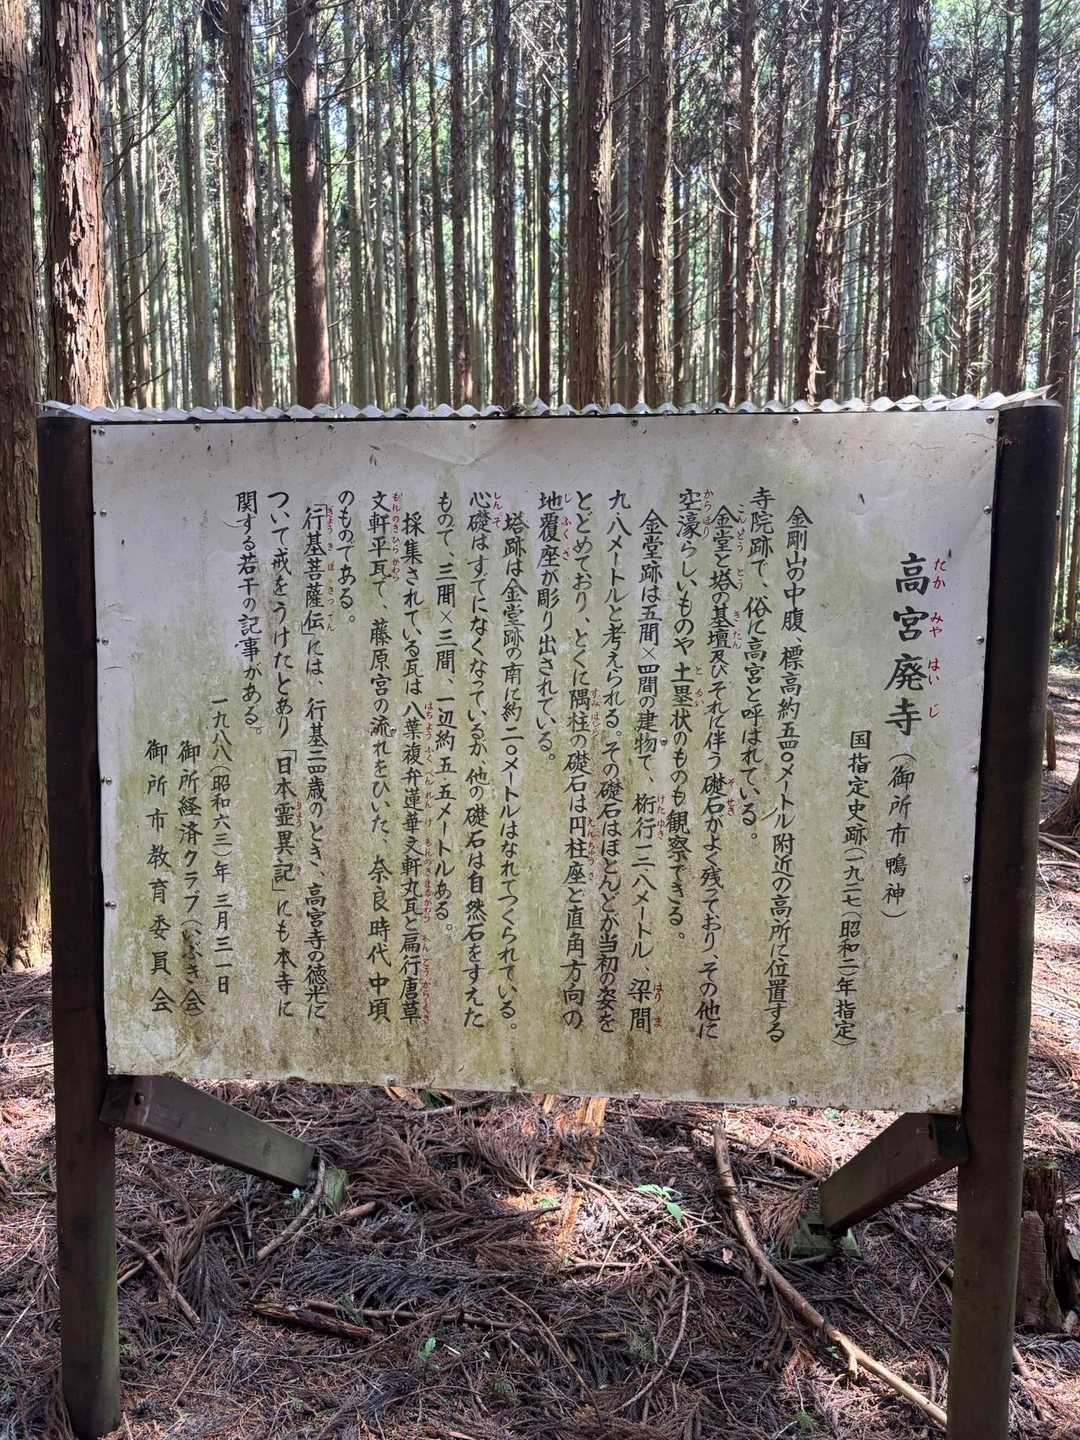 高宮廃寺（御所市鴨神）
国指定史跡（一九二七（昭和二）年指定）
金剛山の中腹、標高約五四〇メートル附近の高所に位置する
寺院跡で、俗に高宮と呼ばれている。
金堂と塔の基壇及びそれに伴う礎石がよく残っており、その他に
空濠らしいものや土塁状のものも観察できる。
金堂跡は五間×四間の建物で、桁行一二・八メートル、梁間
九・八メートルと考えられる。その礎石はほとんどが当初の姿を
とどめており、とくに隅柱の礎石は円柱座と直角方向の
地覆座が彫り出されている。
塔跡は金堂跡の南に約二〇メートルはなれてつくられている。
心礎はすでになくなっているが、他の礎石は自然石をすえた
もので、三間×三間、一辺約五・五メートルある。
採集されている瓦は八葉複弁蓮華文軒丸瓦と扁行唐草
文軒平瓦で、藤原宮の流れをひいた、奈良時代中頃
のものである。
「行基菩薩伝」には、行基二四歳のとき、高宮寺の徳光に
ついて戒をうけたとあり「日本霊異記」にも本寺に
関する若干の記事がある。
一九八八（昭和六三）年三月三一日
御所経済クラブ（いぶき会）
御所市教育委員会